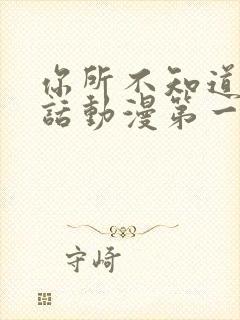 你所不知道
話動漫第一
守崎